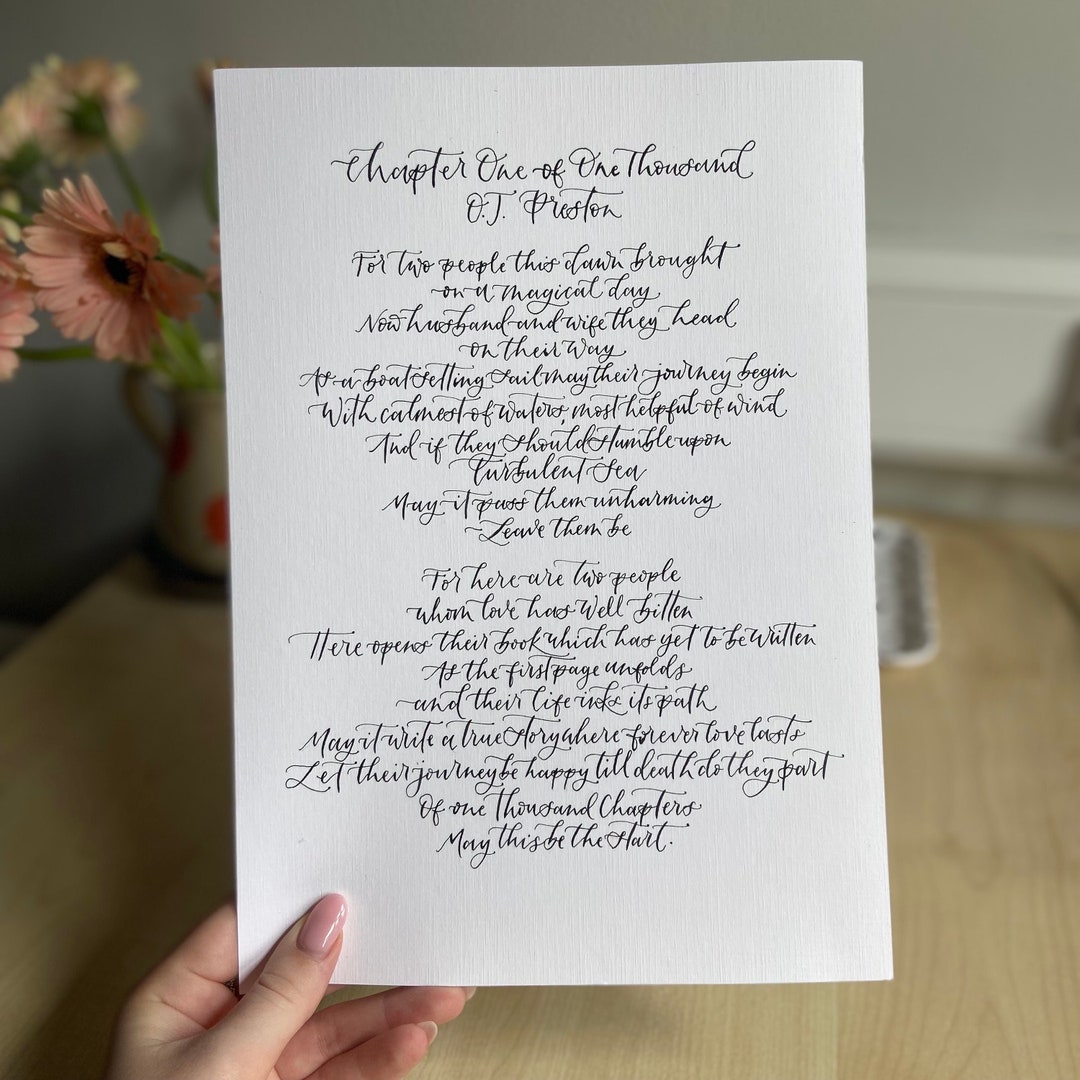 Chapter One of One Thousand
O.J. Preston
For two people this dawn brought
on a magical day
Now husband and wife they head
on their way
As a boat setting sail may their journey begin
With calmest of waters, most helpful of wind
And if they should stumble upon
turbulent sea
May it pass them unharming
Leave them be
For here are two people
whom love has well bitten
Here opens their book which has yet to be written
As the first page unfolds
and their life inks its path
May it write a true story where forever love lasts
Let their journey be happy till death do they part
Of one thousand Chapters
May this be the start.